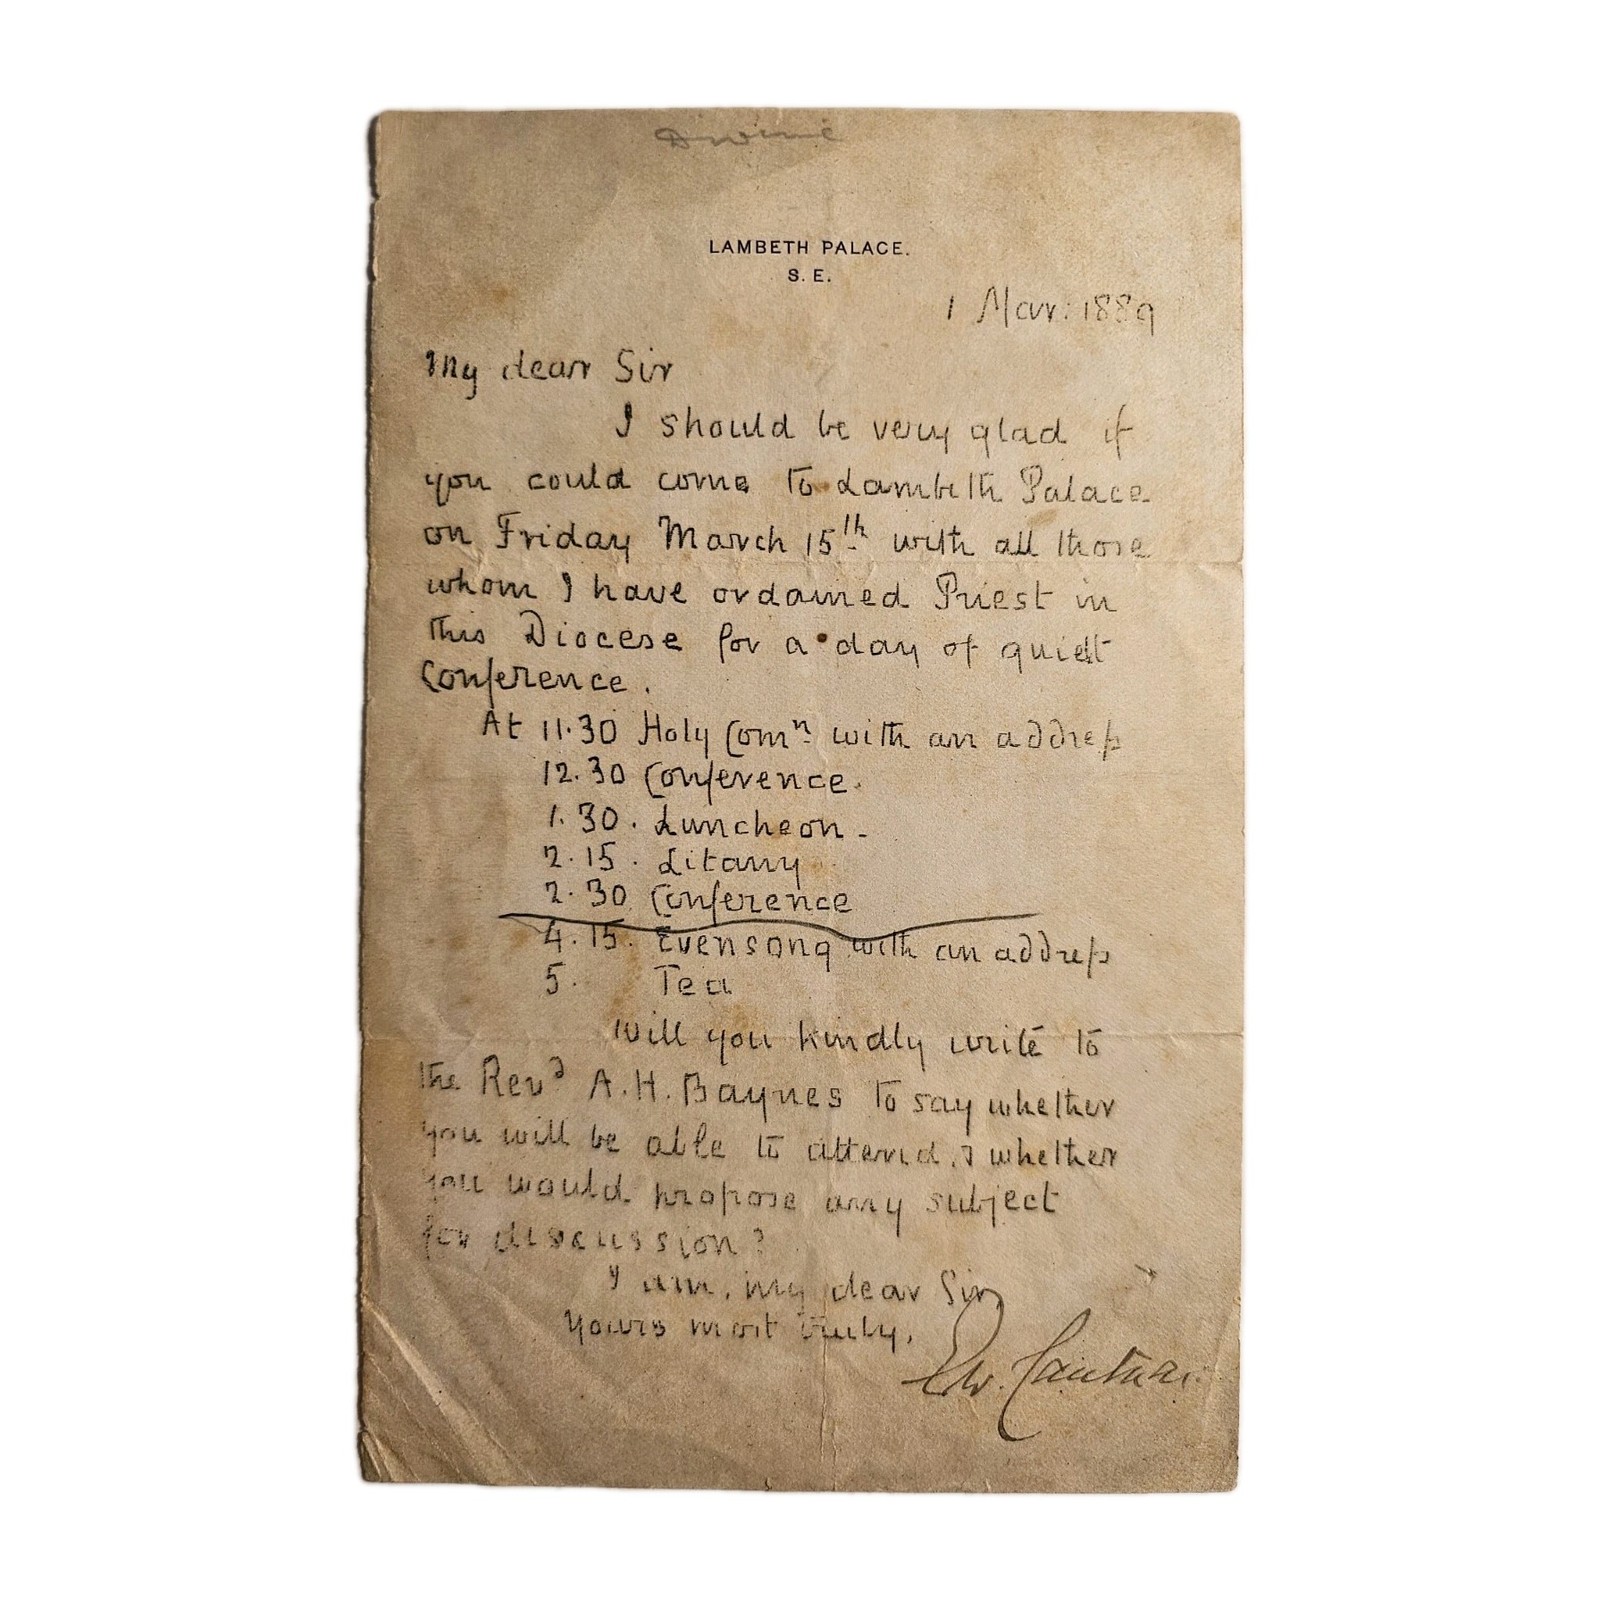 LAMBETH PALACE.
S. E.
1 Mar: 1889
My dear Sir
I should be very glad if
you could come to Lambeth Palace
on Friday March 15th with all those
whom I have ordained Priest in
this Diocese for a day of quiet
Conference.
At 11.30 Holy Comn. with an address
12.30 Conference.
1.30. Luncheon.
2.15. Litany
2.30 Conference
4.15. Evensong with an address
5. Tea
Will you kindly write to
the Revd A. H. Baynes to say whether
you will be able to attend, & whether
you would propose any subject
for discussion?
I am, my dear Sir,
Yours most truly,
Edw. Cantuar: